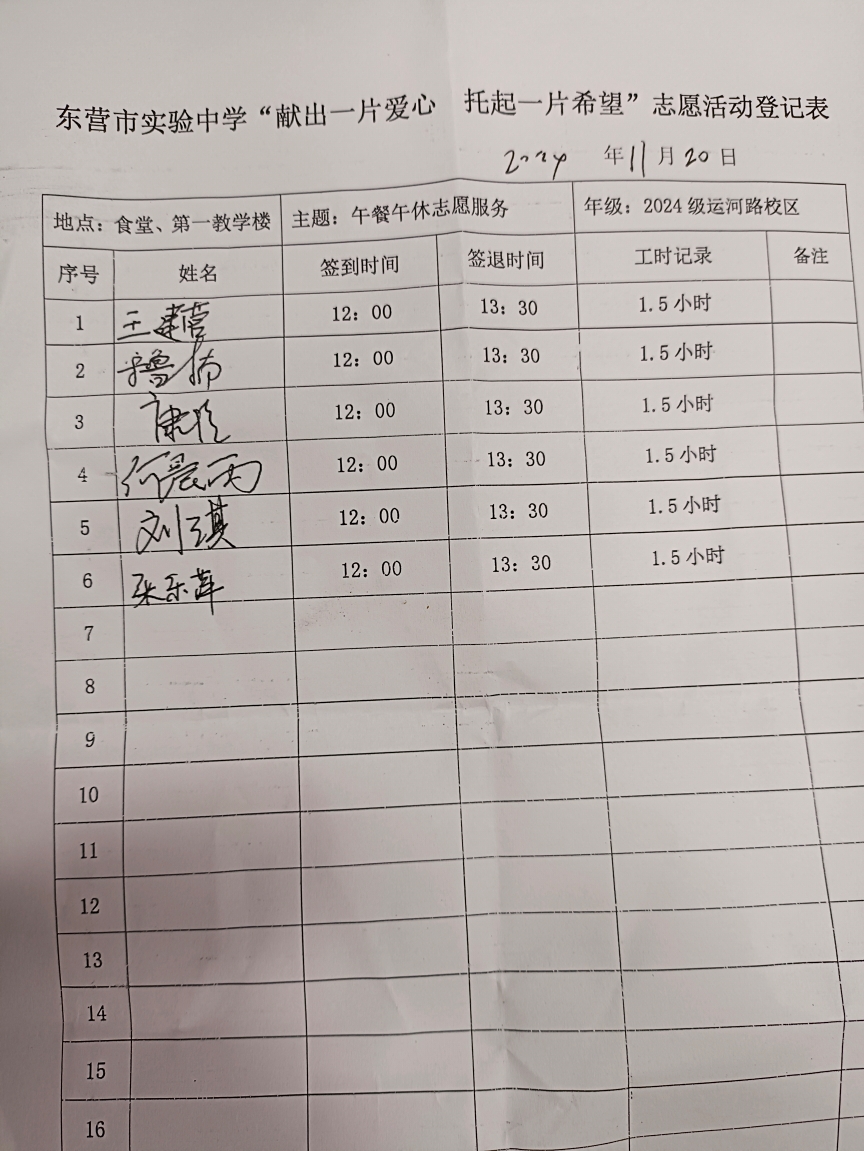 东营市实验中学“献出一片爱心 托起一片希望”志愿活动登记表
2024 年 11 月 20 日
地点：食堂、第一教学楼 主题：午餐午休志愿服务 年级：2024 级运河路校区
序号 姓名 签到时间 签退时间 工时记录 备注
1 王建营 12：00 13：30 1.5 小时
2 12：00 13：30 1.5 小时
3 12：00 13：30 1.5 小时
4 何晨雨 12：00 13：30 1.5 小时
5 刘琪 12：00 13：30 1.5 小时
6 张乐萍 12：00 13：30 1.5 小时
7
8
9
10
11
12
13
14
15
16